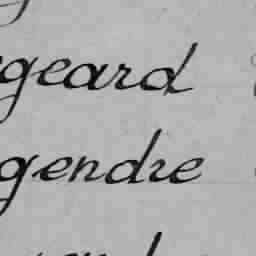 geard
gendre